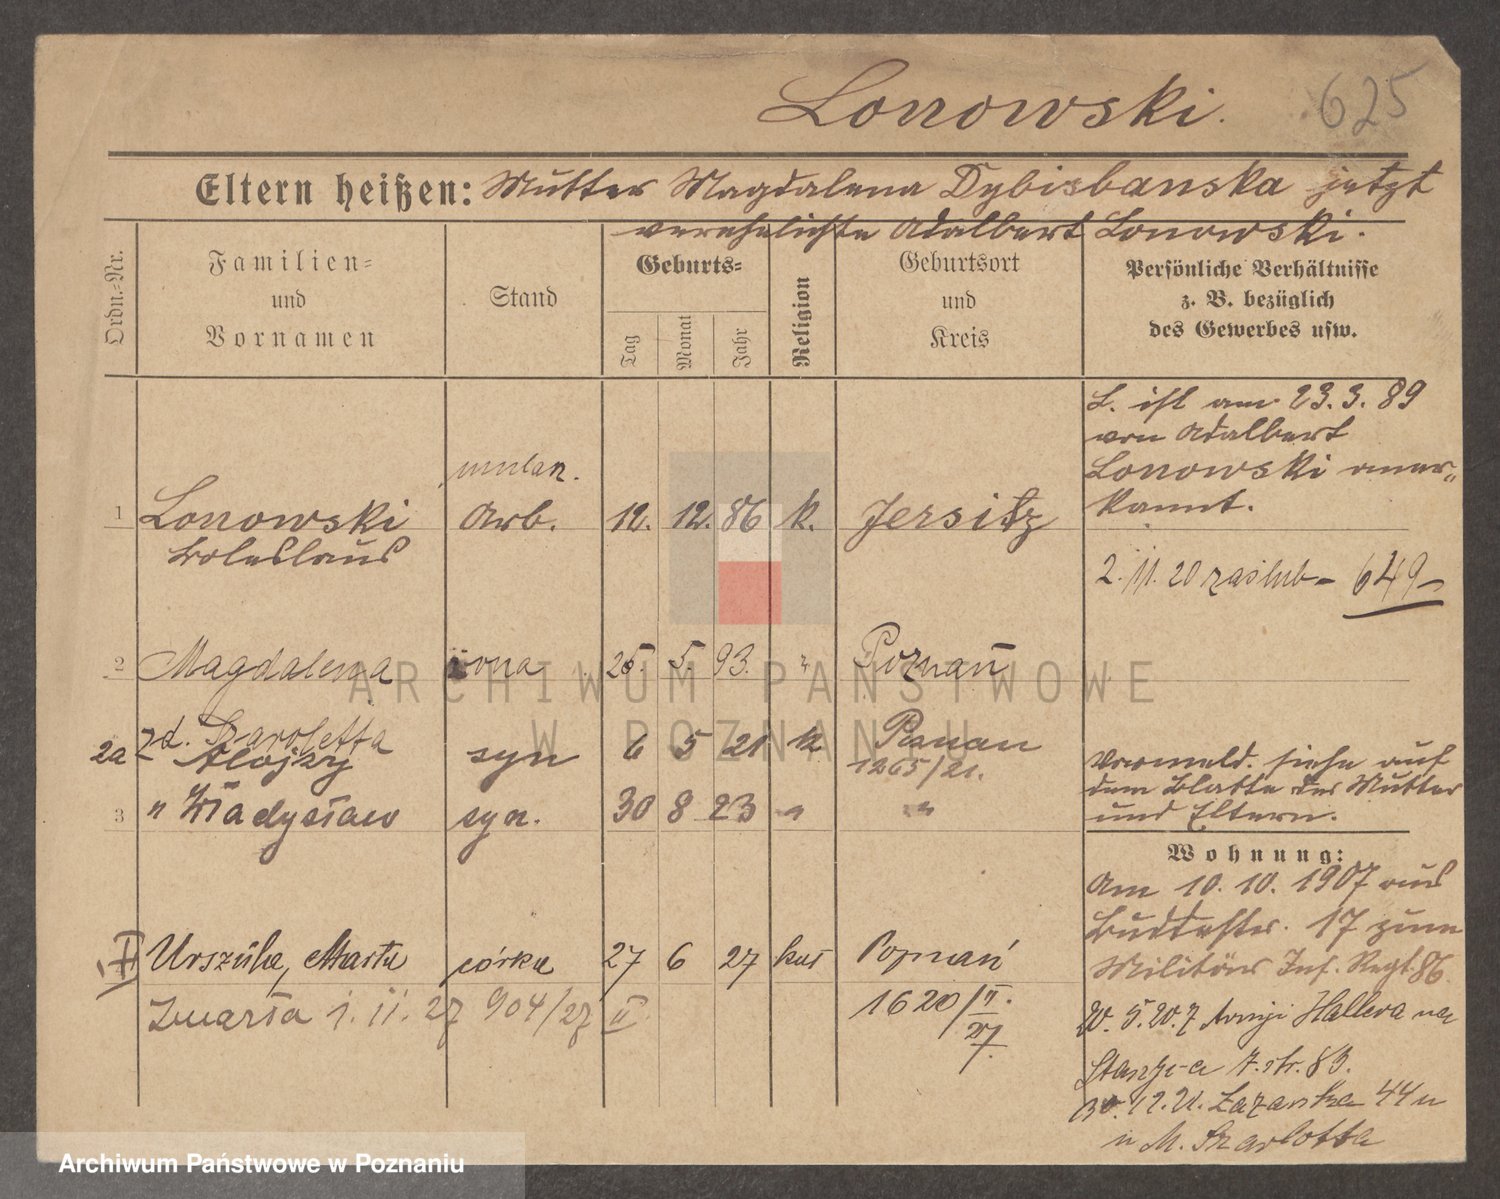 Lonowski. 625
Eltern heißen: Mutter Magdalena Dybisbanska jetzt
verehelichte Adalbert Lonowski.
Ordn.-Nr.
Familien-
und
Vornamen
Stand
Geburts-
Tag
Monat
Jahr
Religion
Geburtsort
und
Kreis
Persönliche Verhältnisse
z. B. bezüglich
des Gewerbes usw.
L. ist am 23. 3. 89
von Adalbert
Lonowski aner-
kannt.
1 Lonowski Arb. 12. 12. 86 k. Jersitz
Boleslaus
2. 11. 20 zaślub- 649-
2 Magdalena żona 25. 5. 93. " Poznań
zd. Szarletta
2a Alojzy syn 6 5 21 k Poznań
1265/21.
3 " Władysław syn. 30 8 23 " "
Vermeld. siehe auf
dem Blatte der Mutter
und Eltern.
Wohnung:
Am 10. 10. 1907 aus
17 zum
Militär Inf. Regt. 86.
II Urszula, Marta córka 27 6 27 kat Poznań
Zmarła 1. 11. 27 904/27 II
1620/II.
27.
20. 5. 20. z Armji Hallera na
7. str. 83.
30. 12. 21. Łazarska 44 u
u M. Szarlotta
ARCHIWUM PAŃSTWOWE
W POZNANIU
Archiwum Państwowe w Poznaniu